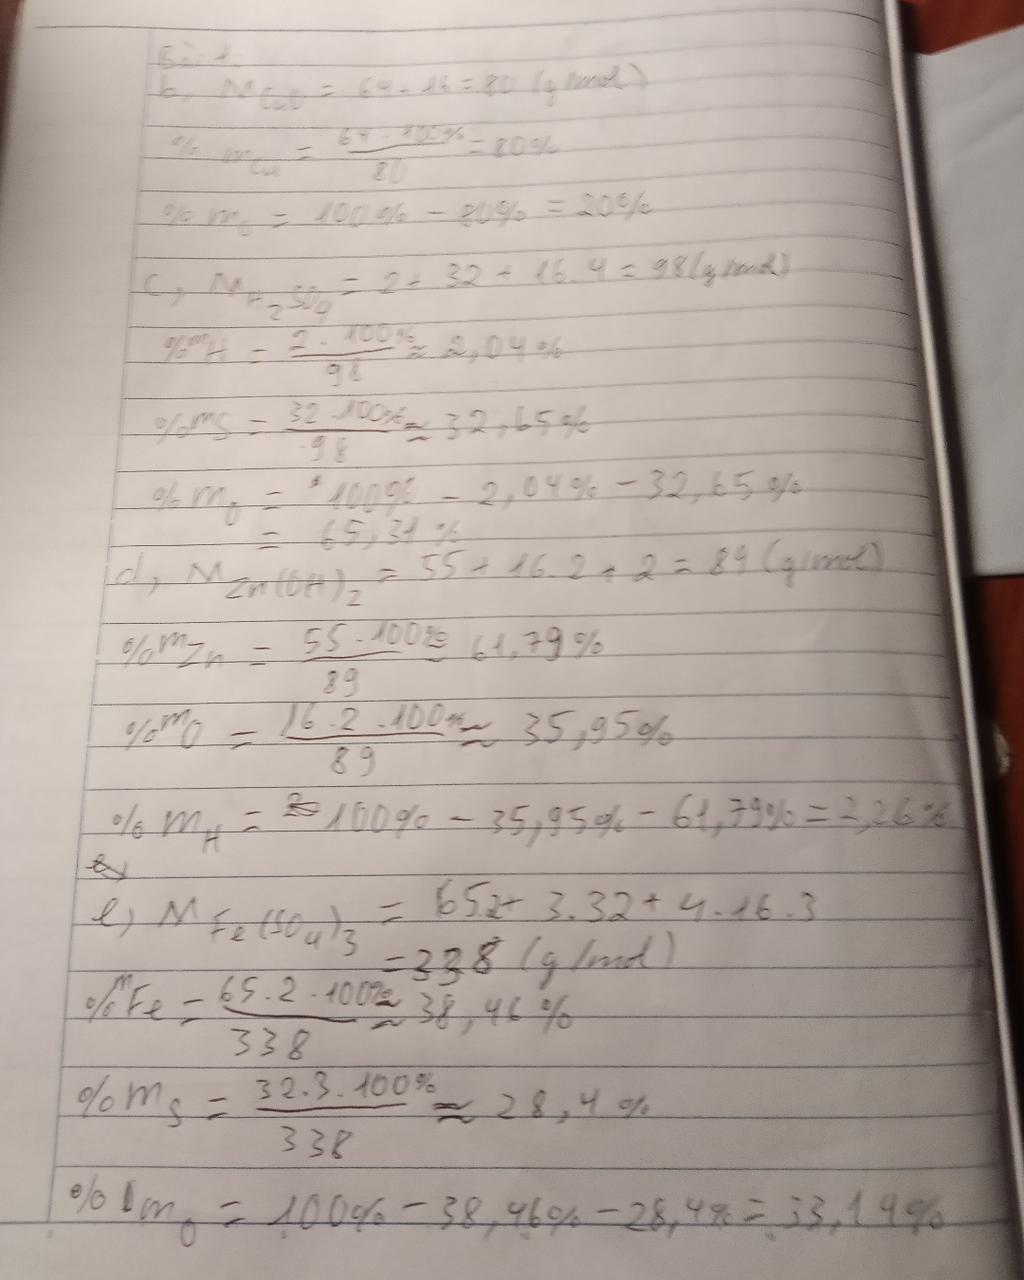 Bài 1.
b, M CuO = 64 + 16 = 80 (g/mol)
% mCu = 64 . 100% / 80 = 80%
% mO = 100% - 80% = 20%
c, M H2SO4 = 2 + 32 + 16.4 = 98 (g/mol)
%mH = 2 . 100% / 98 ≈ 2,04%
%mS = 32 . 100% / 98 ≈ 32,65%
%mO = 100% - 2,04% - 32,65%
= 65,31%
d, M Zn(OH)2 = 55 + 16.2 + 2 = 89 (g/mol)
%mZn = 55 . 100% / 89 ≈ 61,79%
%mO = 16.2.100% / 89 ≈ 35,95%
%mH = 100% - 35,95% - 61,79% = 2,26%
e, M Fe(SO4)3 = 65.2 + 3.32 + 4.16.3
= 338 (g/mol)
%mFe = 65.2.100% / 338 ≈ 38,46%
%mS = 32.3.100% / 338 ≈ 28,4%
%mO = 100% - 38,46% - 28,4% = 33,14%